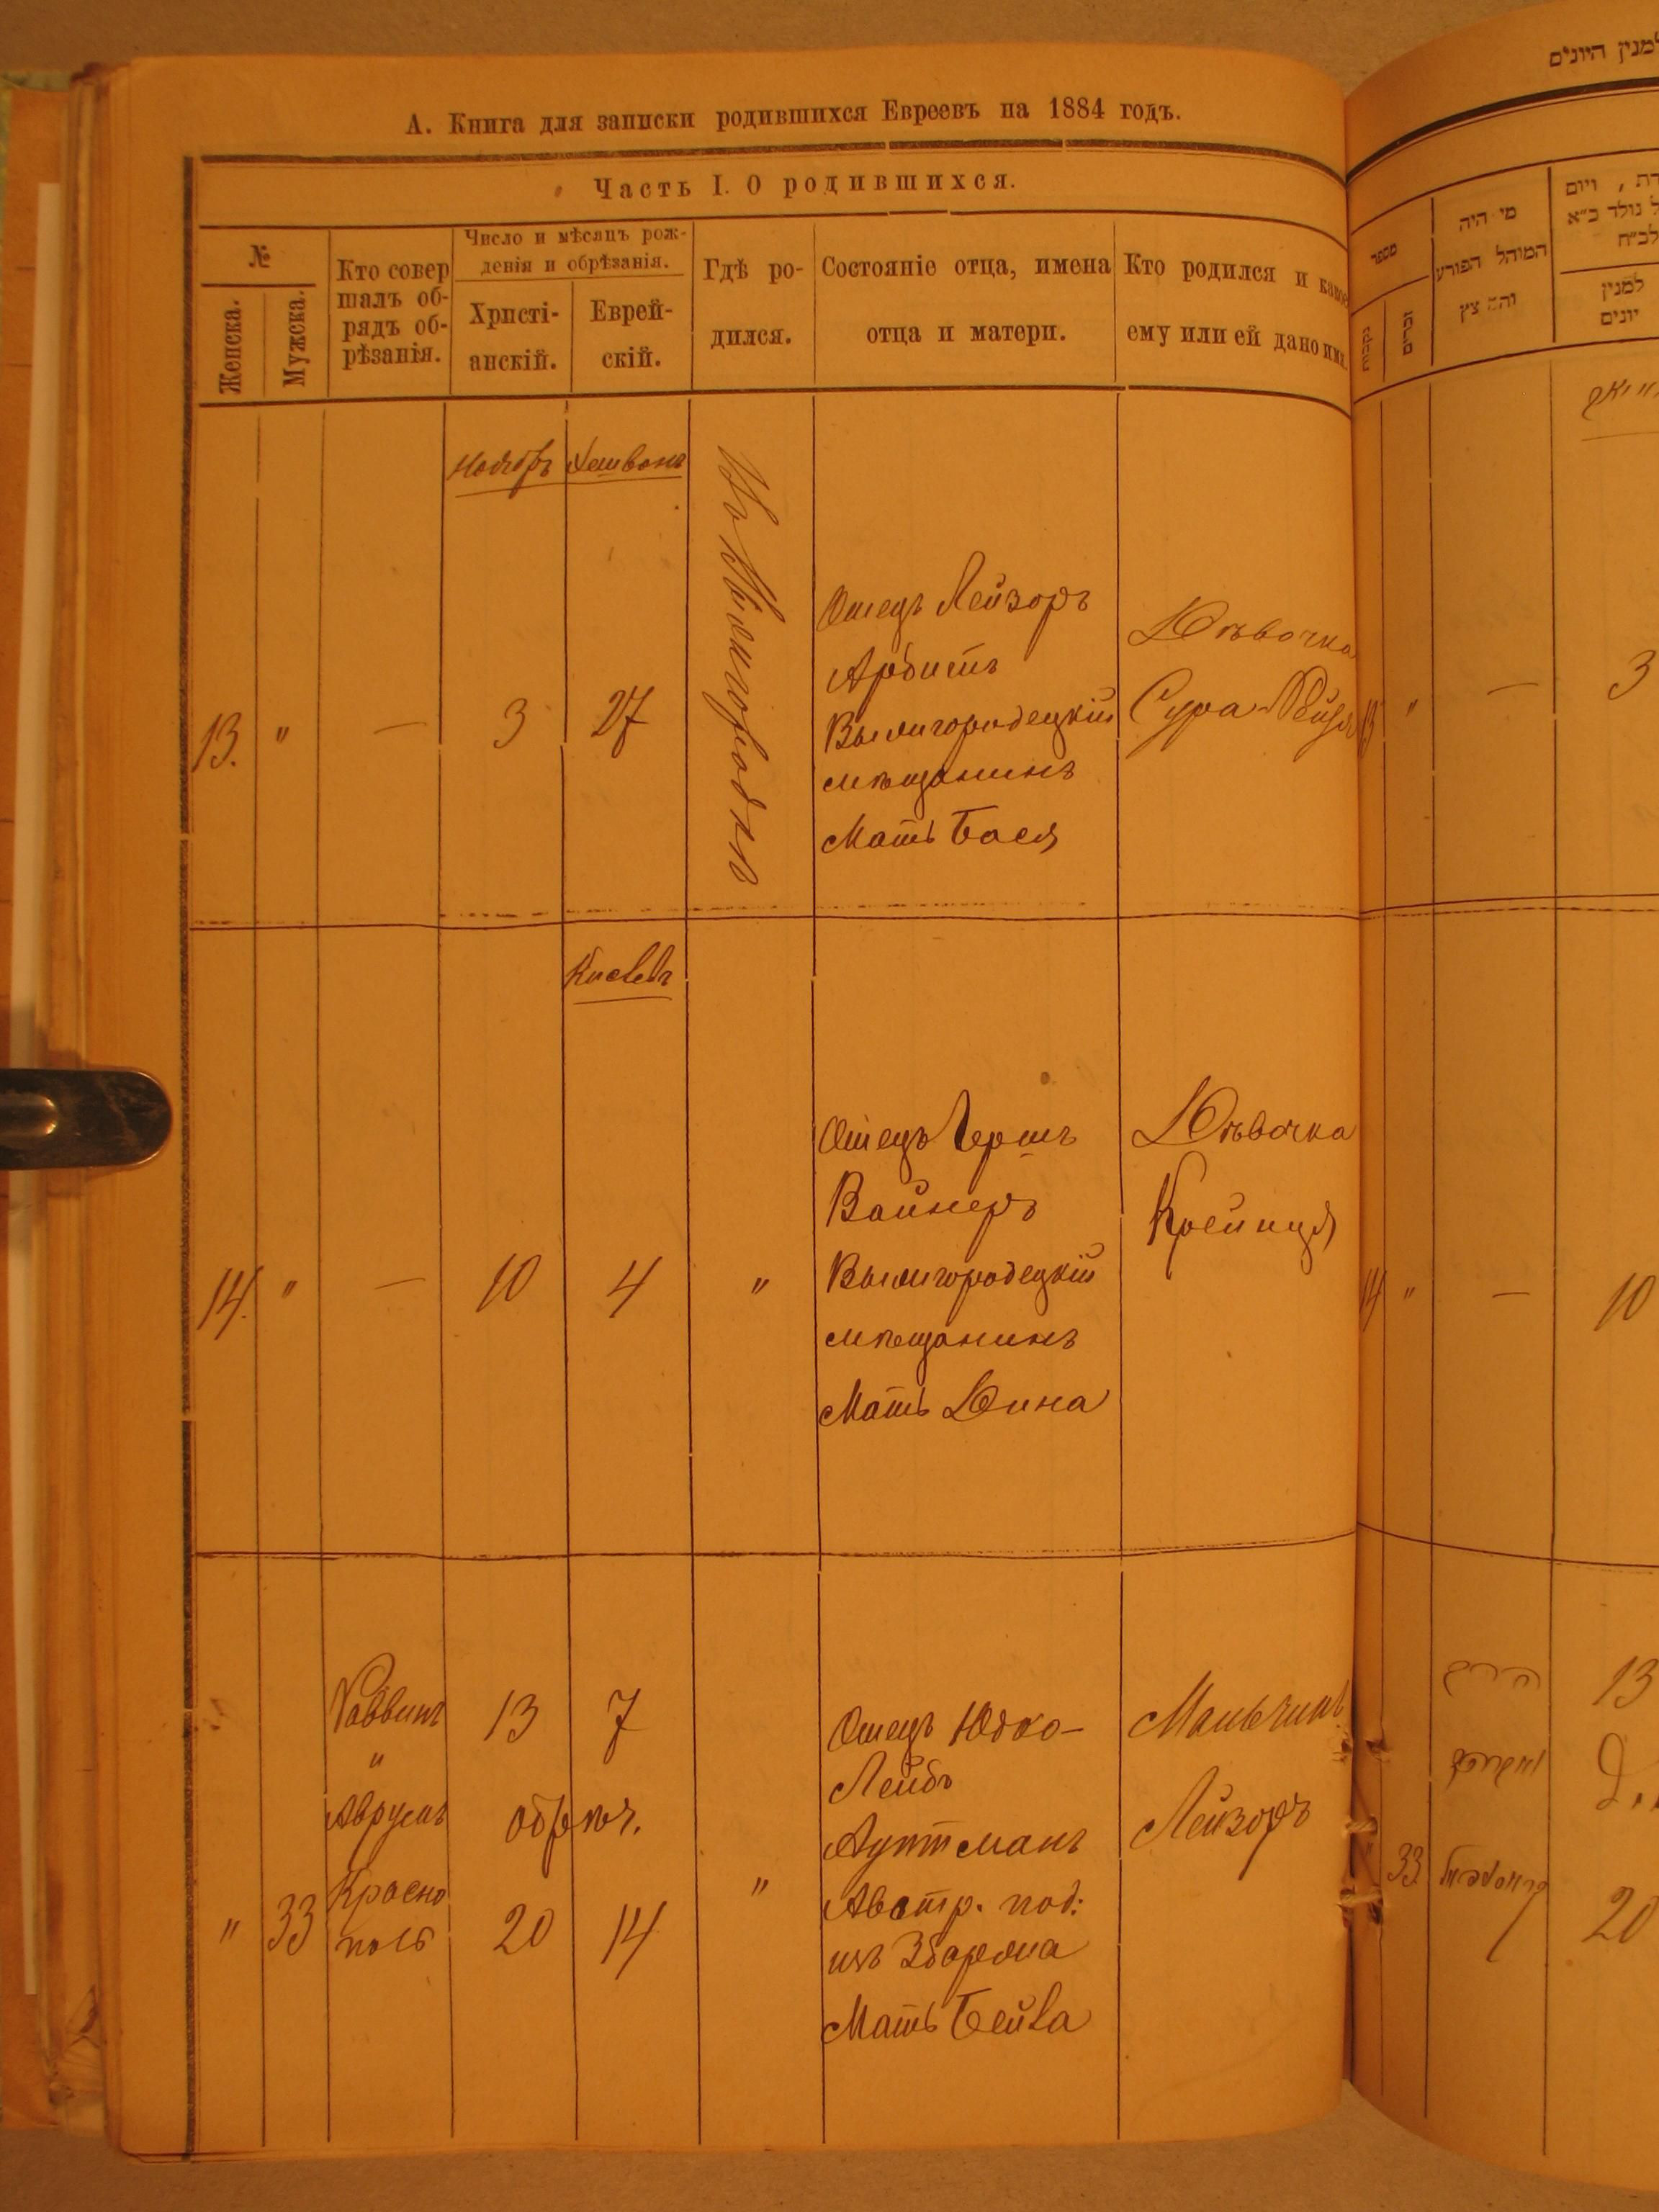 А. Книга для записки родившихся Евреевъ на 1884 годъ.
Часть I. О родившихся.
№
Женска.
Мужска.
Кто совер
шалъ об-
рядъ об-
рѣзанія.
Число и мѣсяцъ рож-
денія и обрѣзанія.
Христі-
анскій.
Еврей-
скій.
Гдѣ ро-
дился.
Состояніе отца, имена
отца и матери.
Кто родился и какое
ему или ей дано имя.
Ноябрь
Хешвонъ
13.
"
—
3
27
Въ Вышгородкѣ
Отецъ Лейзоръ
Арбитъ
Вышгородецкій
мѣщанинъ
Мать Бася
Дѣвочка
Сура-Рейзя
Кислевъ
14.
"
—
10
4
"
Отецъ Гершъ
Вайнеръ
Вышгородецкій
мѣщанинъ
Мать Дина
Дѣвочка
Крейнця
"
33
Раввинъ
"
Аврумъ
Красно
поль
13
7
обрѣз.
20
14
"
Отецъ Юдко-
Лейбъ
Ауптманъ
Австр. под:
изъ Збаража
Мать Бейла
Мальчикъ
Лейзоръ
למנין היונים
מספר
נקבות
זכרים
מי היה
המוהל הפורע
והמצץ
ויום
נולד כ״א
לכ״ח
למנין
יונים
13
"
—
3
14
"
—
10
33
13
20